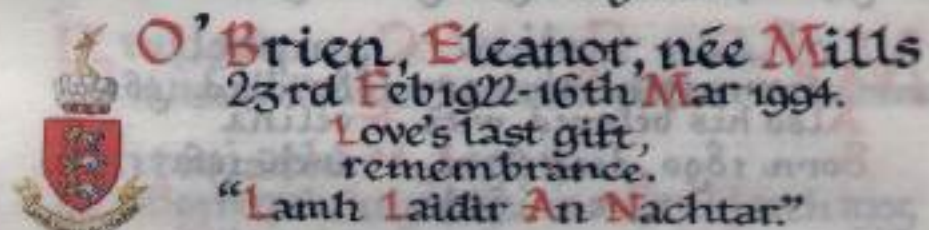 O'Brien, Eleanor, née Mills
23rd Feb 1922-16th Mar 1994.
Love's last gift,
remembrance.
"Lamh Laidir An Nachtar."